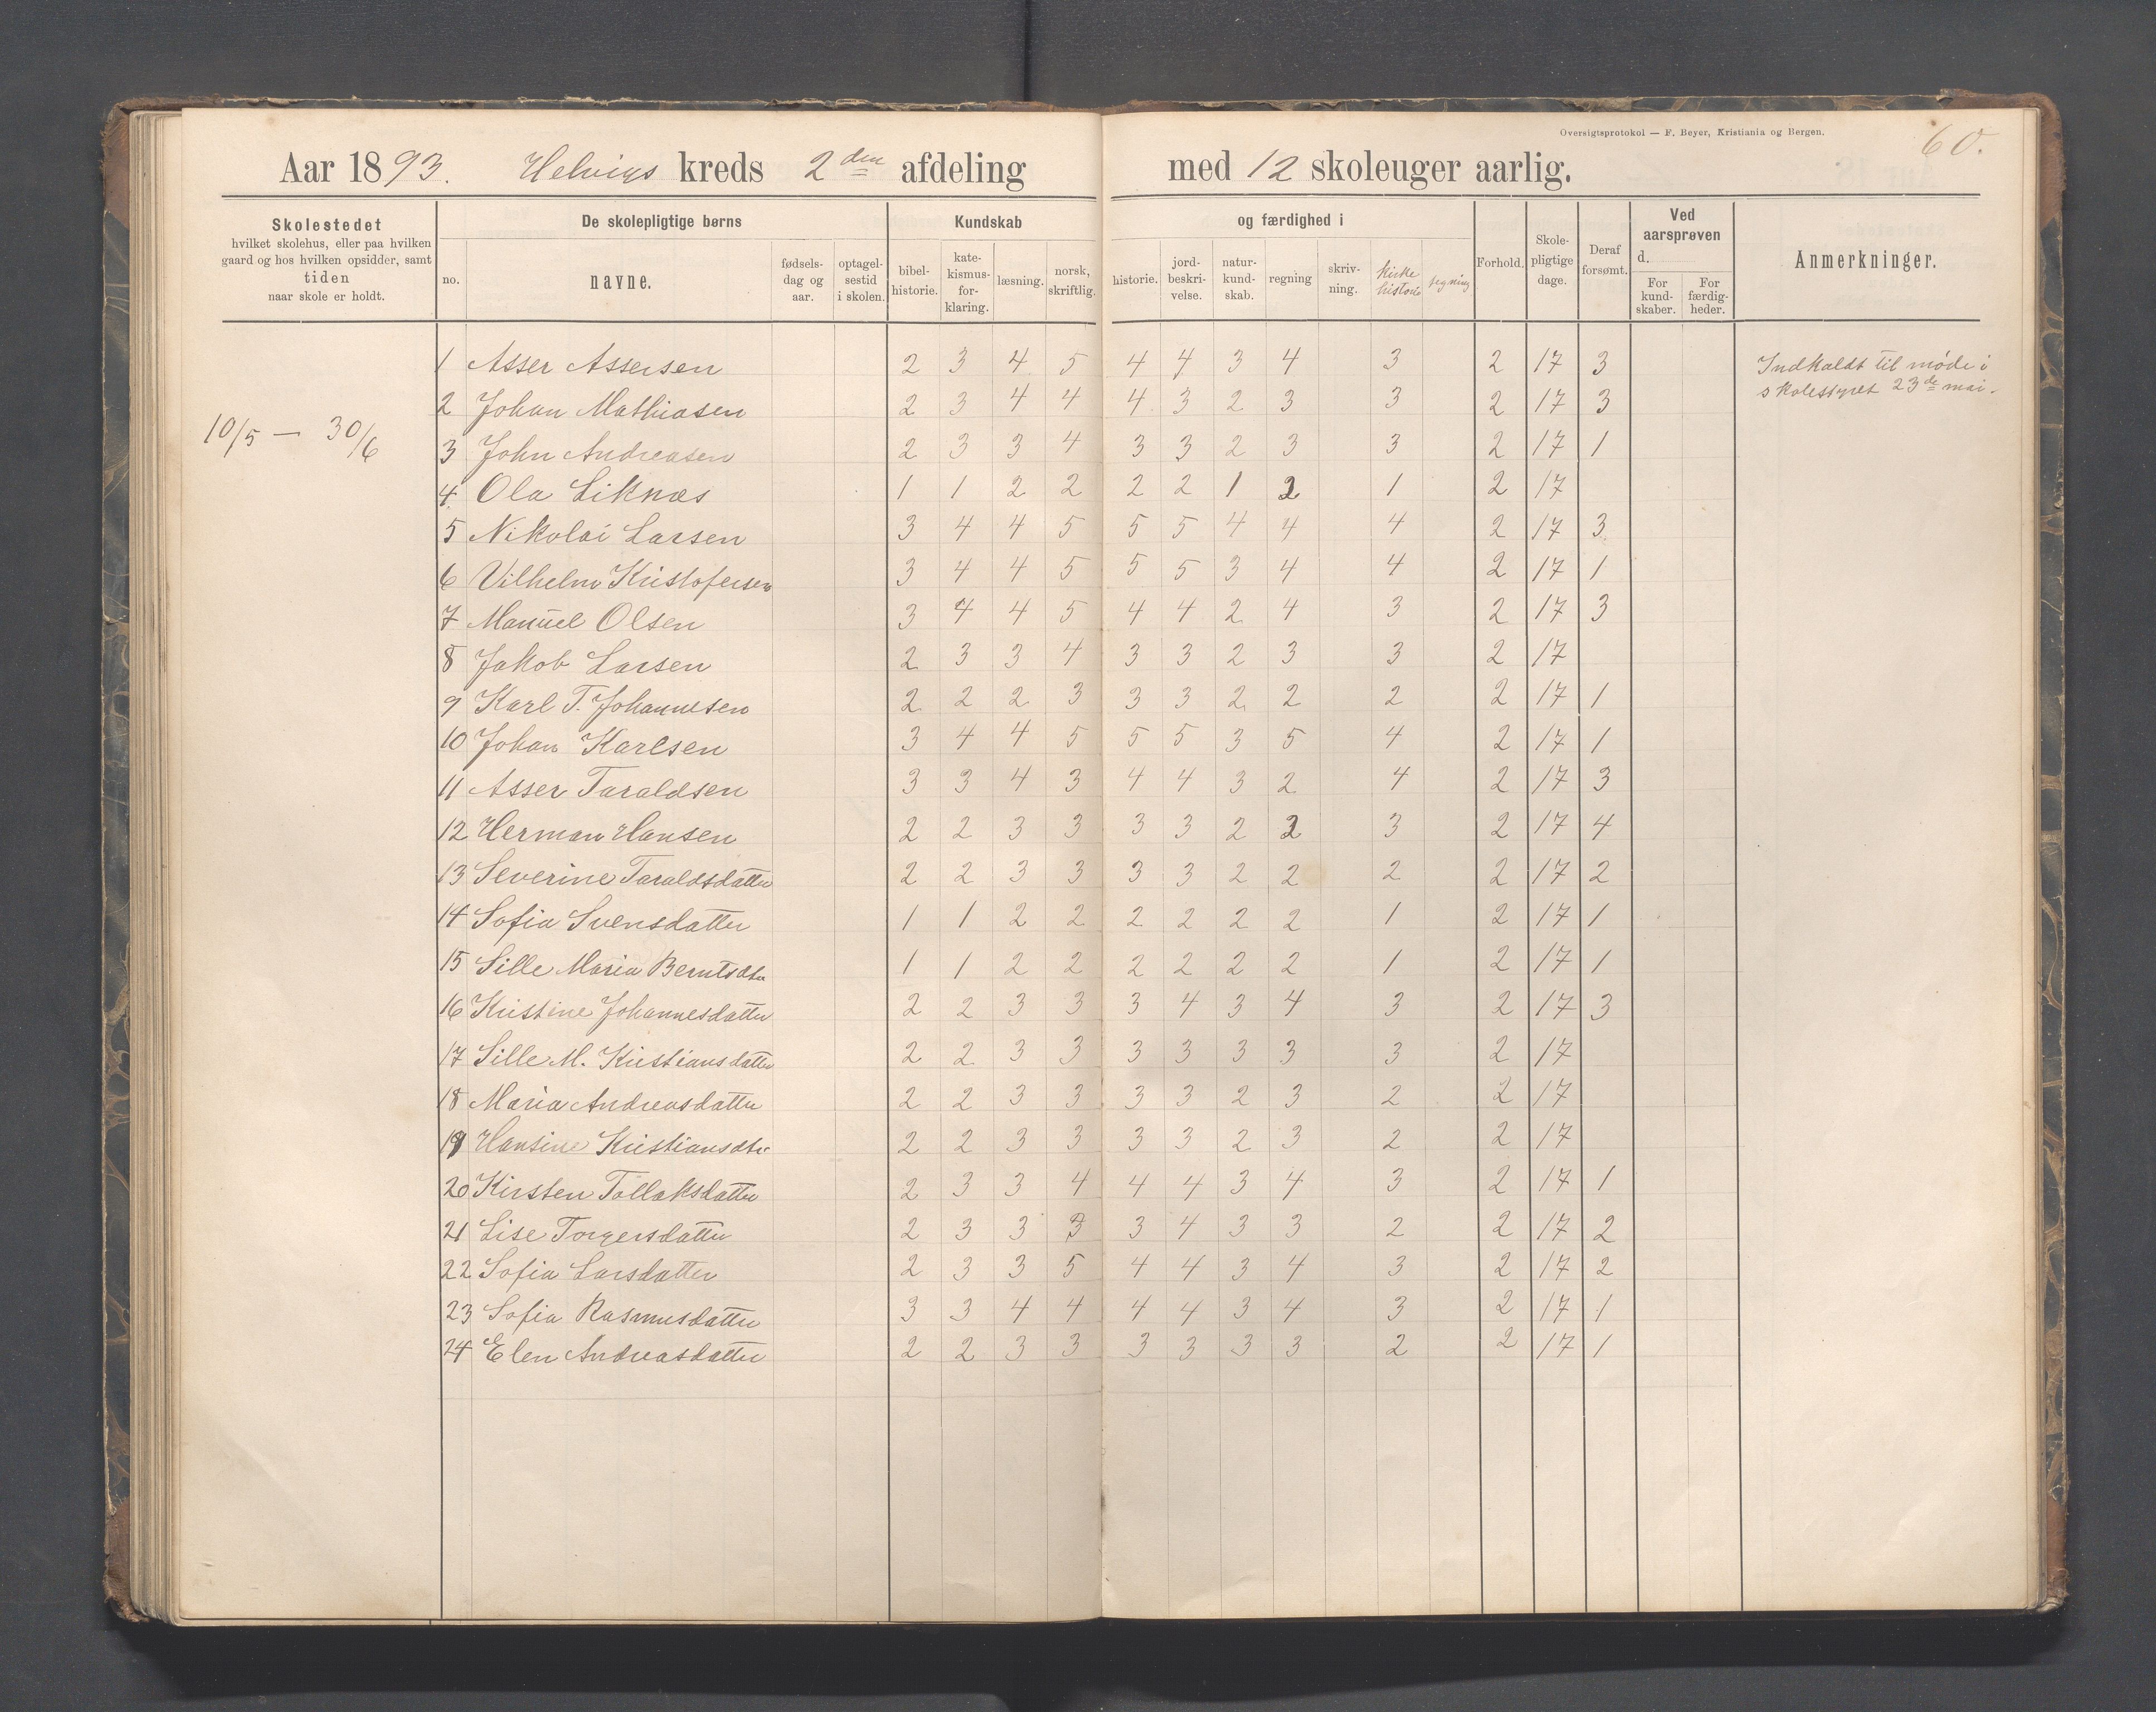 Oversigtsprotokol — F. Beyer, Kristiania og Bergen.
60.
Aar 1893. Helvigs kreds 2den afdeling med 12 skoleuger aarlig.
Skolestedet hvilket skolehus, eller paa hvilken gaard og hos hvilken opsidder, samt tiden naar skole er holdt.
De skolepligtige børns
no. navne. fødsels-dag og aar. optagel-sestid i skolen.
Kundskab og færdighed i
bibel-historie. kate-kismus-for-klaring. læsning. norsk, skriftlig. historie. jord-beskri-velse. natur-kund-skab. regning skriv-ning. Kirke historie tegning
Forhold. Skole-pligtige dage. Deraf forsømt.
Ved aarsprøven d.
For kund-skaber. For færdig-heder.
Anmerkninger.
10/5 — 30/6
1 Asser Assersen 2 3 4 5 4 4 3 4 3 2 17 3 Indkaldt til møde i
skolestyret 23de mai.
2 Johan Mathiasen 2 3 4 4 4 3 2 3 3 2 17 3
3 John Andreasen 2 3 3 4 3 3 2 3 3 2 17 1
4. Ola Liknæs 1 1 2 2 2 2 1 2 1 2 17
5 Nikolai Larsen 3 4 4 5 5 5 4 4 4 2 17 3.
6 Vilhelm Kristofersen 3 4 4 5 5 5 3 4 4 2 17 1
7 Manuel Olsen 3 4 4 5 4 4 2 4 3 2 17 3
8 Jakob Larsen 2 3 3 4 3 3 2 3 3 2 17
9 Karl T. Johannesen 2 2 2 3 3 3 2 2 2 2 17 1
10 Johan Karlsen 3 4 4 5 5 5 3 5 4 2 17 1
11 Asser Taraldsen 3 3 4 3 4 4 3 2 4 2 17 3
12 Herman Hansen 2 2 3 3 3 3 2 2 3 2 17 4
13 Severine Taraldsdatter 2 2 3 3 3 3 2 2 2 2 17 2
14 Sofia Svensdatter 1 1 2 2 2 2 2 2 1 2 17 1
15 Sille Maria Berntsdtr 1 1 2 2 2 2 2 2 1 2 17 1
16 Kristine Johannesdatter 2 2 3 3 3 4 3 4 3 2 17 3
17 Sille M. Kristiansdatter 2 2 3 3 3 3 3 3 3 2 17
18 Maria Andreasdatter 2 2 3 3 3 3 2 3 2 2 17
19 Hansine Kristiansdtr 2 2 3 3 3 3 2 3 2 2 17
20 Kirsten Tollaksdatter 2 3 3 4 4 4 3 4 3 2 17 1
21 Lise Torgersdatter 2 3 3 3 3 4 3 3 2 2 17 2
22 Sofia Larsdatter 2 3 3 5 4 4 3 4 3 2 17 2
23 Sofia Rasmusdatter 3 3 4 4 4 4 3 4 3 2 17 1
24 Elen Andreasdatter 2 2 3 3 3 3 3 3 2 2 17 1